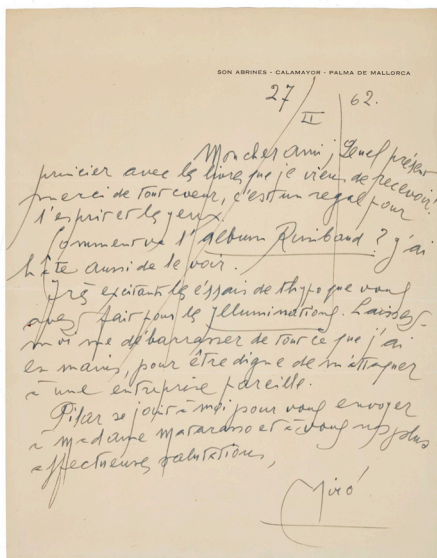 SON ABRINES - CALAMAYOR - PALMA DE MALLORCA
27
II
62.
Mon cher ami, quel présent
princier avec les livres que je viens de recevoir!
merci de tout coeur, c'est un regal pour
l'esprit et les yeux.
Comment va l'album Rimbaud? j'ai
hâte aussi de le voir.
Très excitants les essais de thypo que vous
avez fait pour les Illuminations. Laissez-
moi me débarrasser de tout ce que j'ai
en mains, pour être digne de m'attaquer
à une entreprise pareille.
Pilar se joint à moi pour vous envoyer
à madame Matarasso et à vous nos plus
affectueuses salutations,
Miró